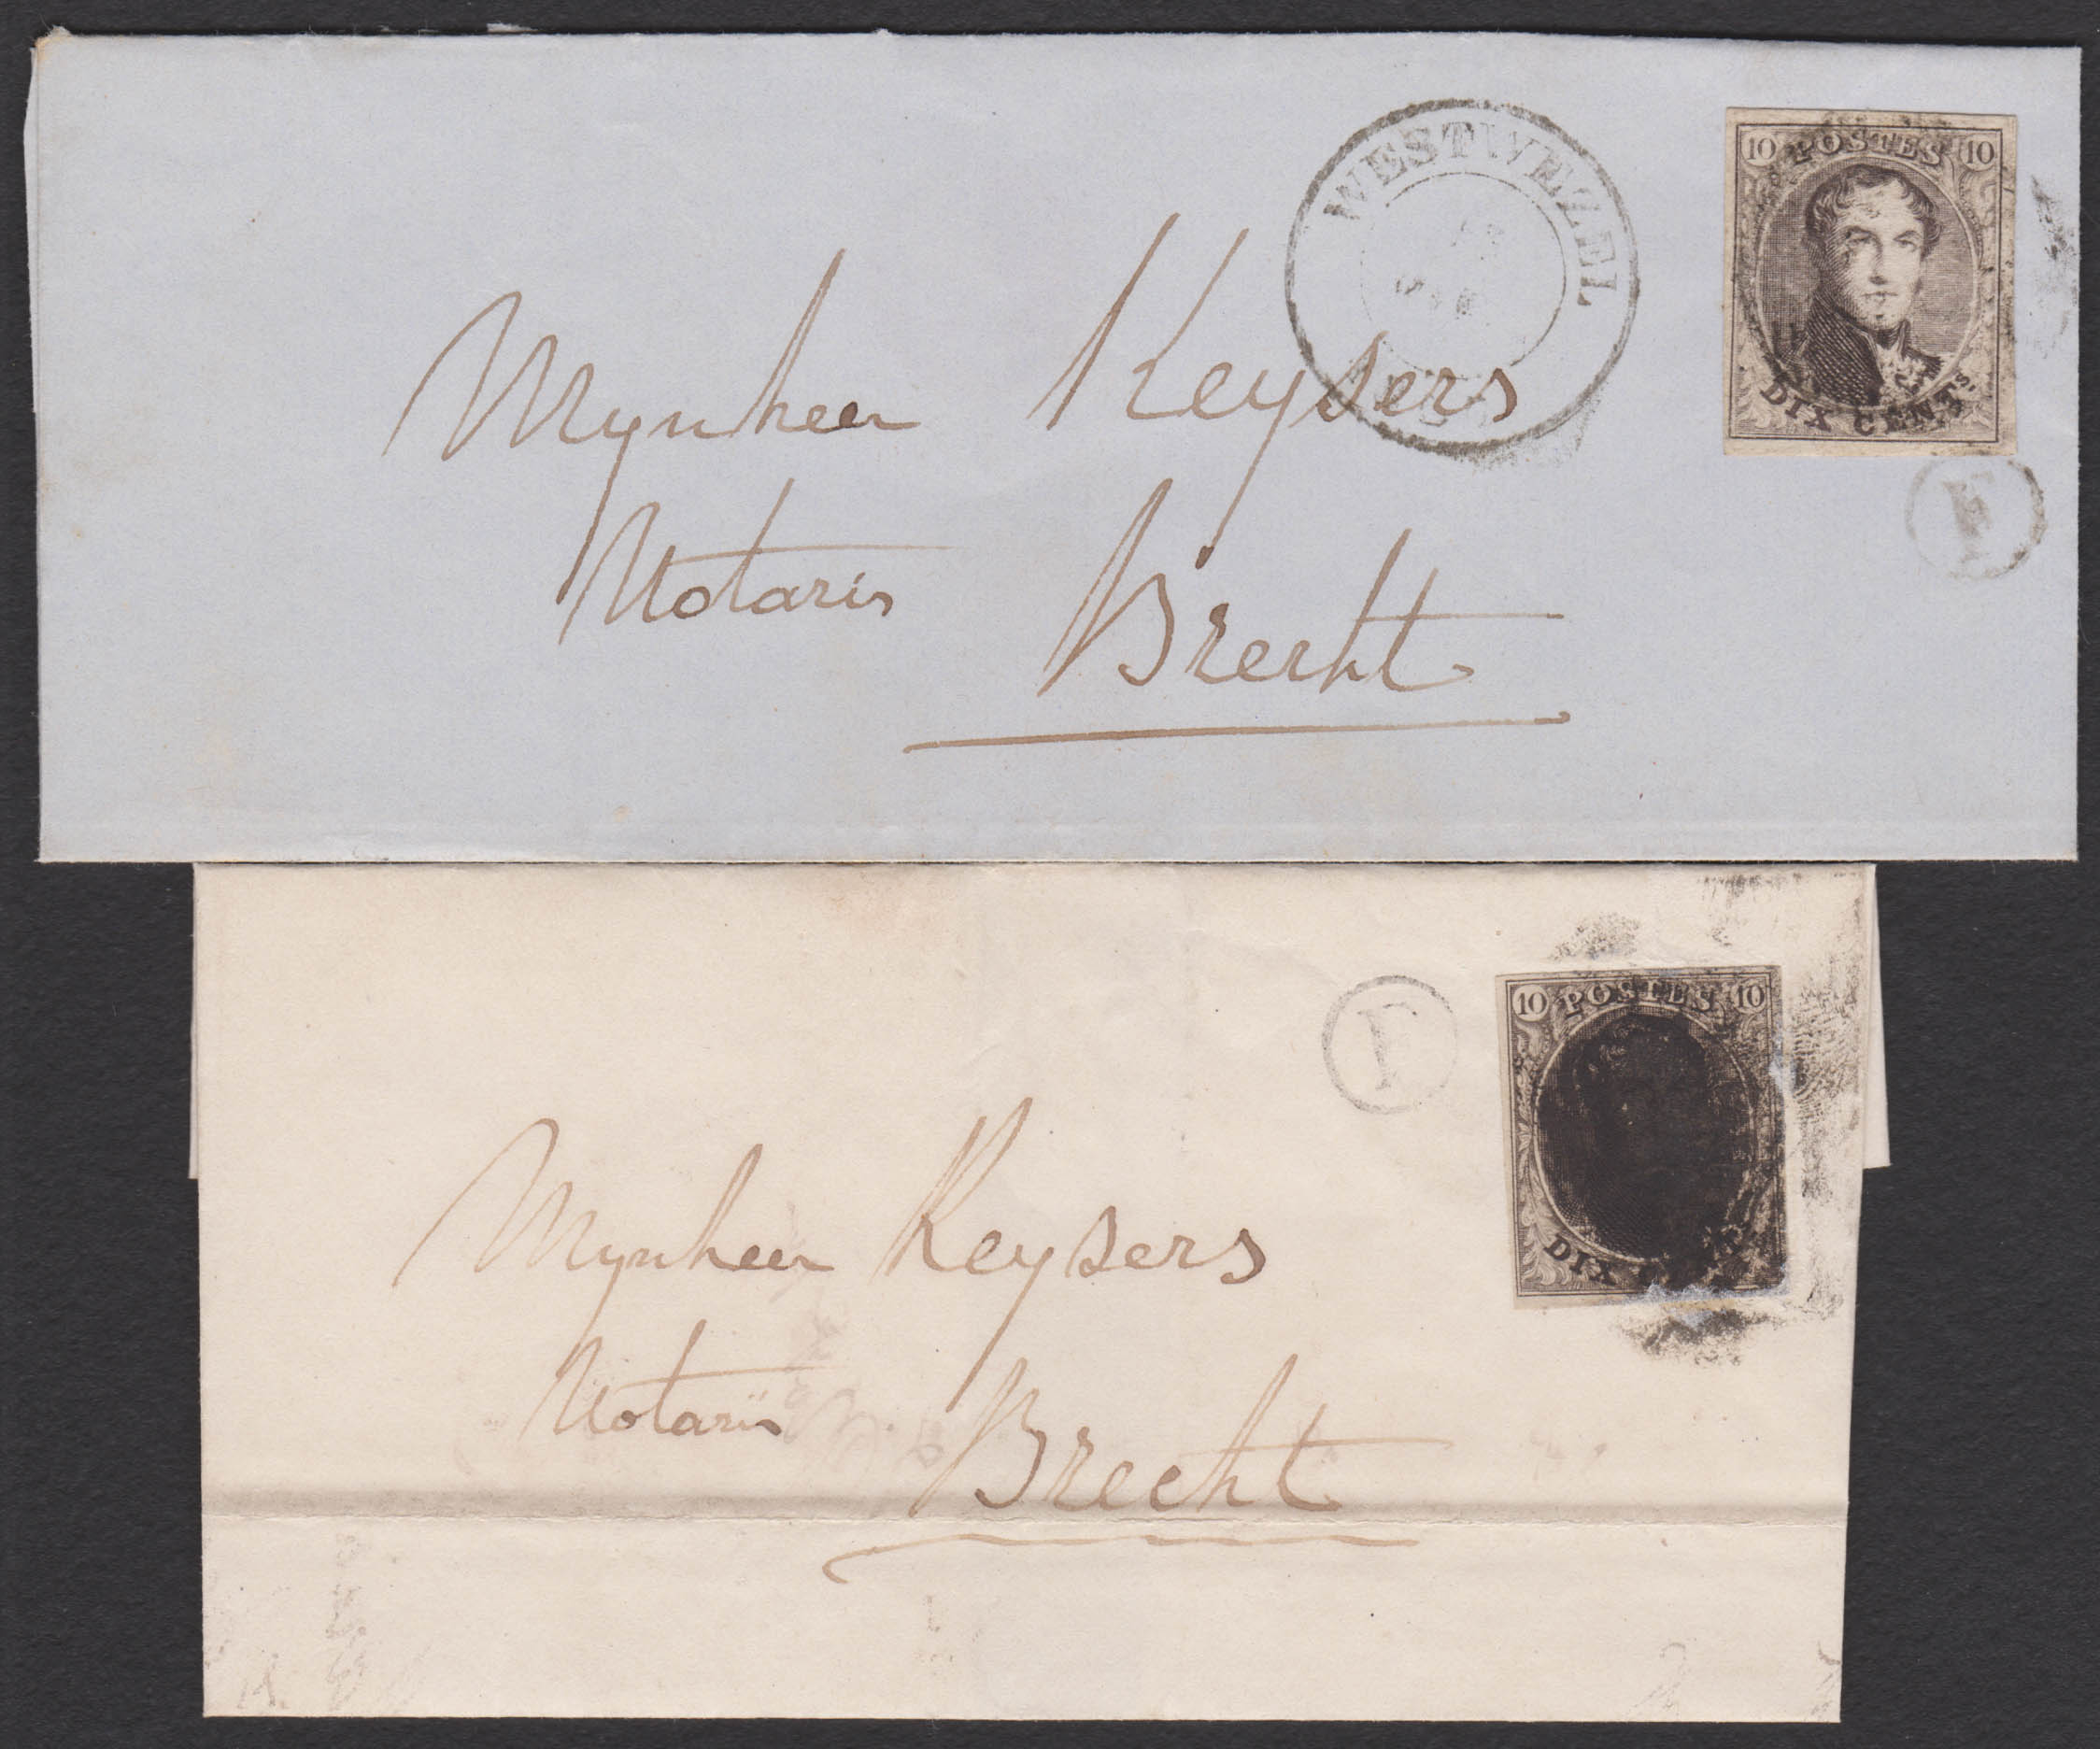 WESTWEZEL
10 POSTES 10
DIX CENTS
F
Mynheer Keysers
Notaris
Brecht
10 POSTES 10
DIX
F
Mynheer Keysers
Notaris
Brecht